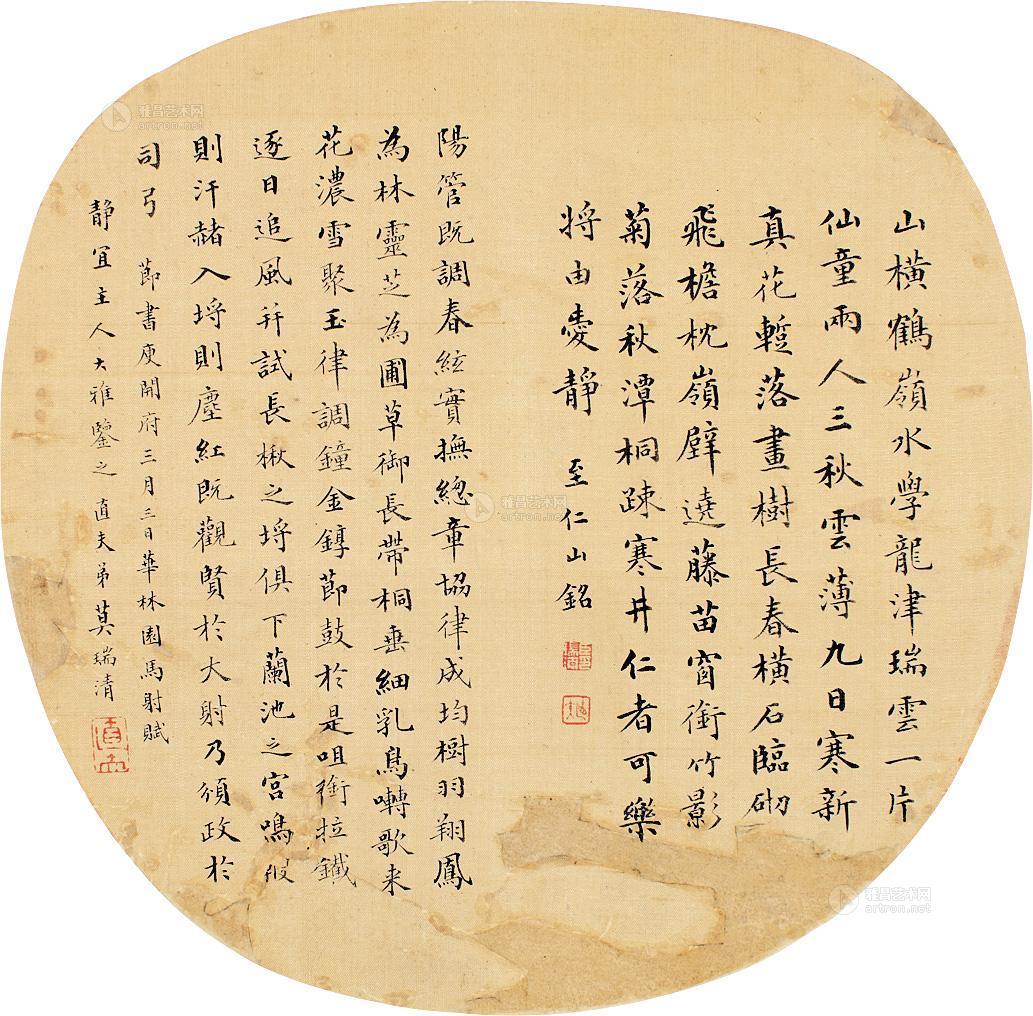 山橫鶴嶺水學龍津瑞雲一片
仙童兩人三秋雲薄九日寒新
真花蹔落畫樹長春橫石臨砌
飛檐枕嶺壁遶藤苗窗銜竹影
菊落秋潭桐踈寒井仁者可樂
將由愛靜 至仁山銘
陽管既調春絃實撫總章協律成均樹羽翔鳳
為林靈芝為圃草御長帶桐垂細乳鳥囀歌来
花濃雪聚玉律調鐘金錞節鼓於是咀銜拉鐵
逐日追風并試長楸之埒俱下蘭池之宮鳴
則汗赭入埒則塵紅既觀賢於大射乃頒政於
司弓 節書庾開府三月三日華林園馬射賦
靜宜主人大雅鑒之 直夫弟莫瑞清
雅昌艺术网
artron.net
雅昌艺术网
artron.net
雅昌艺术网
artron.net